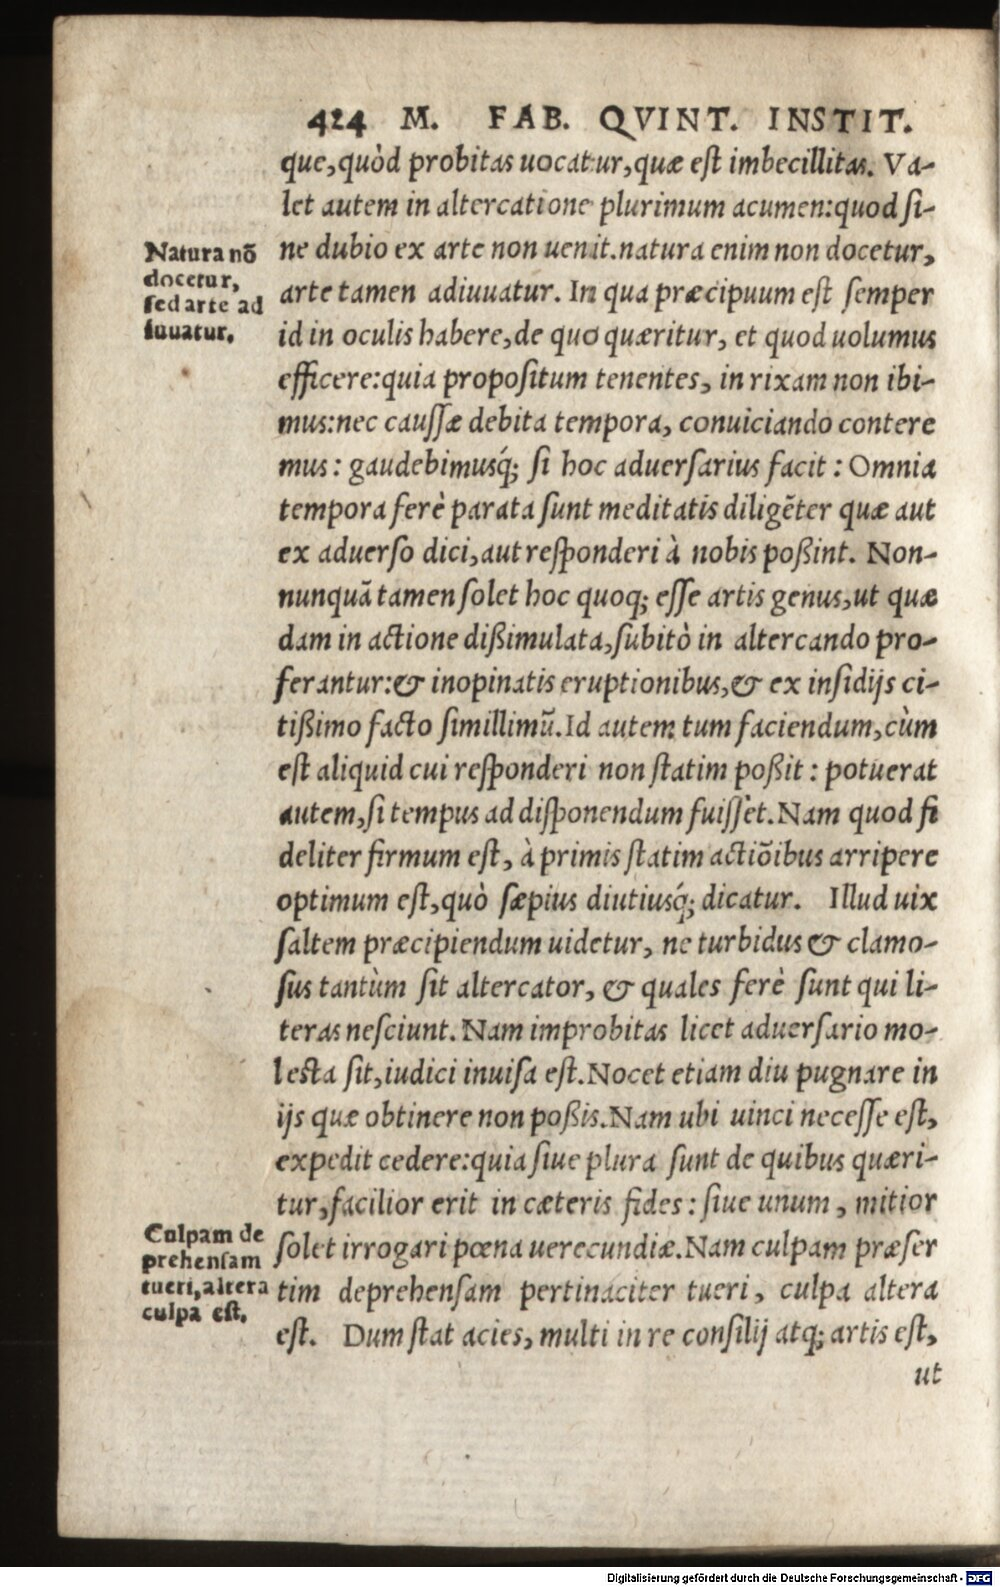 424 M. FAB. QVINT. INSTIT.
que, quòd probitas uocatur, quæ est imbecillitas. Va-
let autem in altercatione plurimum acumen: quod si-
ne dubio ex arte non uenit. natura enim non docetur,
arte tamen adiuuatur. In qua præcipuum est semper
id in oculis habere, de quo quæritur, et quod uolumus
efficere: quia propositum tenentes, in rixam non ibi-
mus: nec caussæ debita tempora, conuiciando contere
mus: gaudebimusq́; si hoc aduersarius facit: Omnia
tempora ferè parata sunt meditatis diligẽter quæ aut
ex aduerso dici, aut responderi à nobis poßint. Non-
nunquã tamen solet hoc quoq; esse artis genus, ut quæ
dam in actione dißimulata, subitò in altercando pro-
ferantur: & inopinatis eruptionibus, & ex insidijs ci-
tißimo facto simillimũ. Id autem tum faciendum, cùm
est aliquid cui responderi non statim poßit: potuerat
autem, si tempus ad disponendum fuisset. Nam quod fi
deliter firmum est, à primis statim actiõibus arripere
optimum est, quò sæpius diutiusq́; dicatur. Illud uix
saltem præcipiendum uidetur, ne turbidus & clamo-
sus tantùm sit altercator, & quales ferè sunt qui li-
teras nesciunt. Nam improbitas licet aduersario mo-
lesta sit, iudici inuisa est. Nocet etiam diu pugnare in
ijs quæ obtinere non poßis. Nam ubi uinci necesse est,
expedit cedere: quia siue plura sunt de quibus quæri-
tur, facilior erit in cæteris fides: siue unum, mitior
solet irrogari pœna uerecundiæ. Nam culpam præser
tim deprehensam pertinaciter tueri, culpa altera
est. Dum stat acies, multi in re consilij atq; artis est,
ut
Natura nõ
docetur,
sed arte ad
iuuatur.
Culpam de
prehensam
tueri, altera
culpa est.
Digitalisierung gefördert durch die Deutsche Forschungsgemeinschaft - DFG